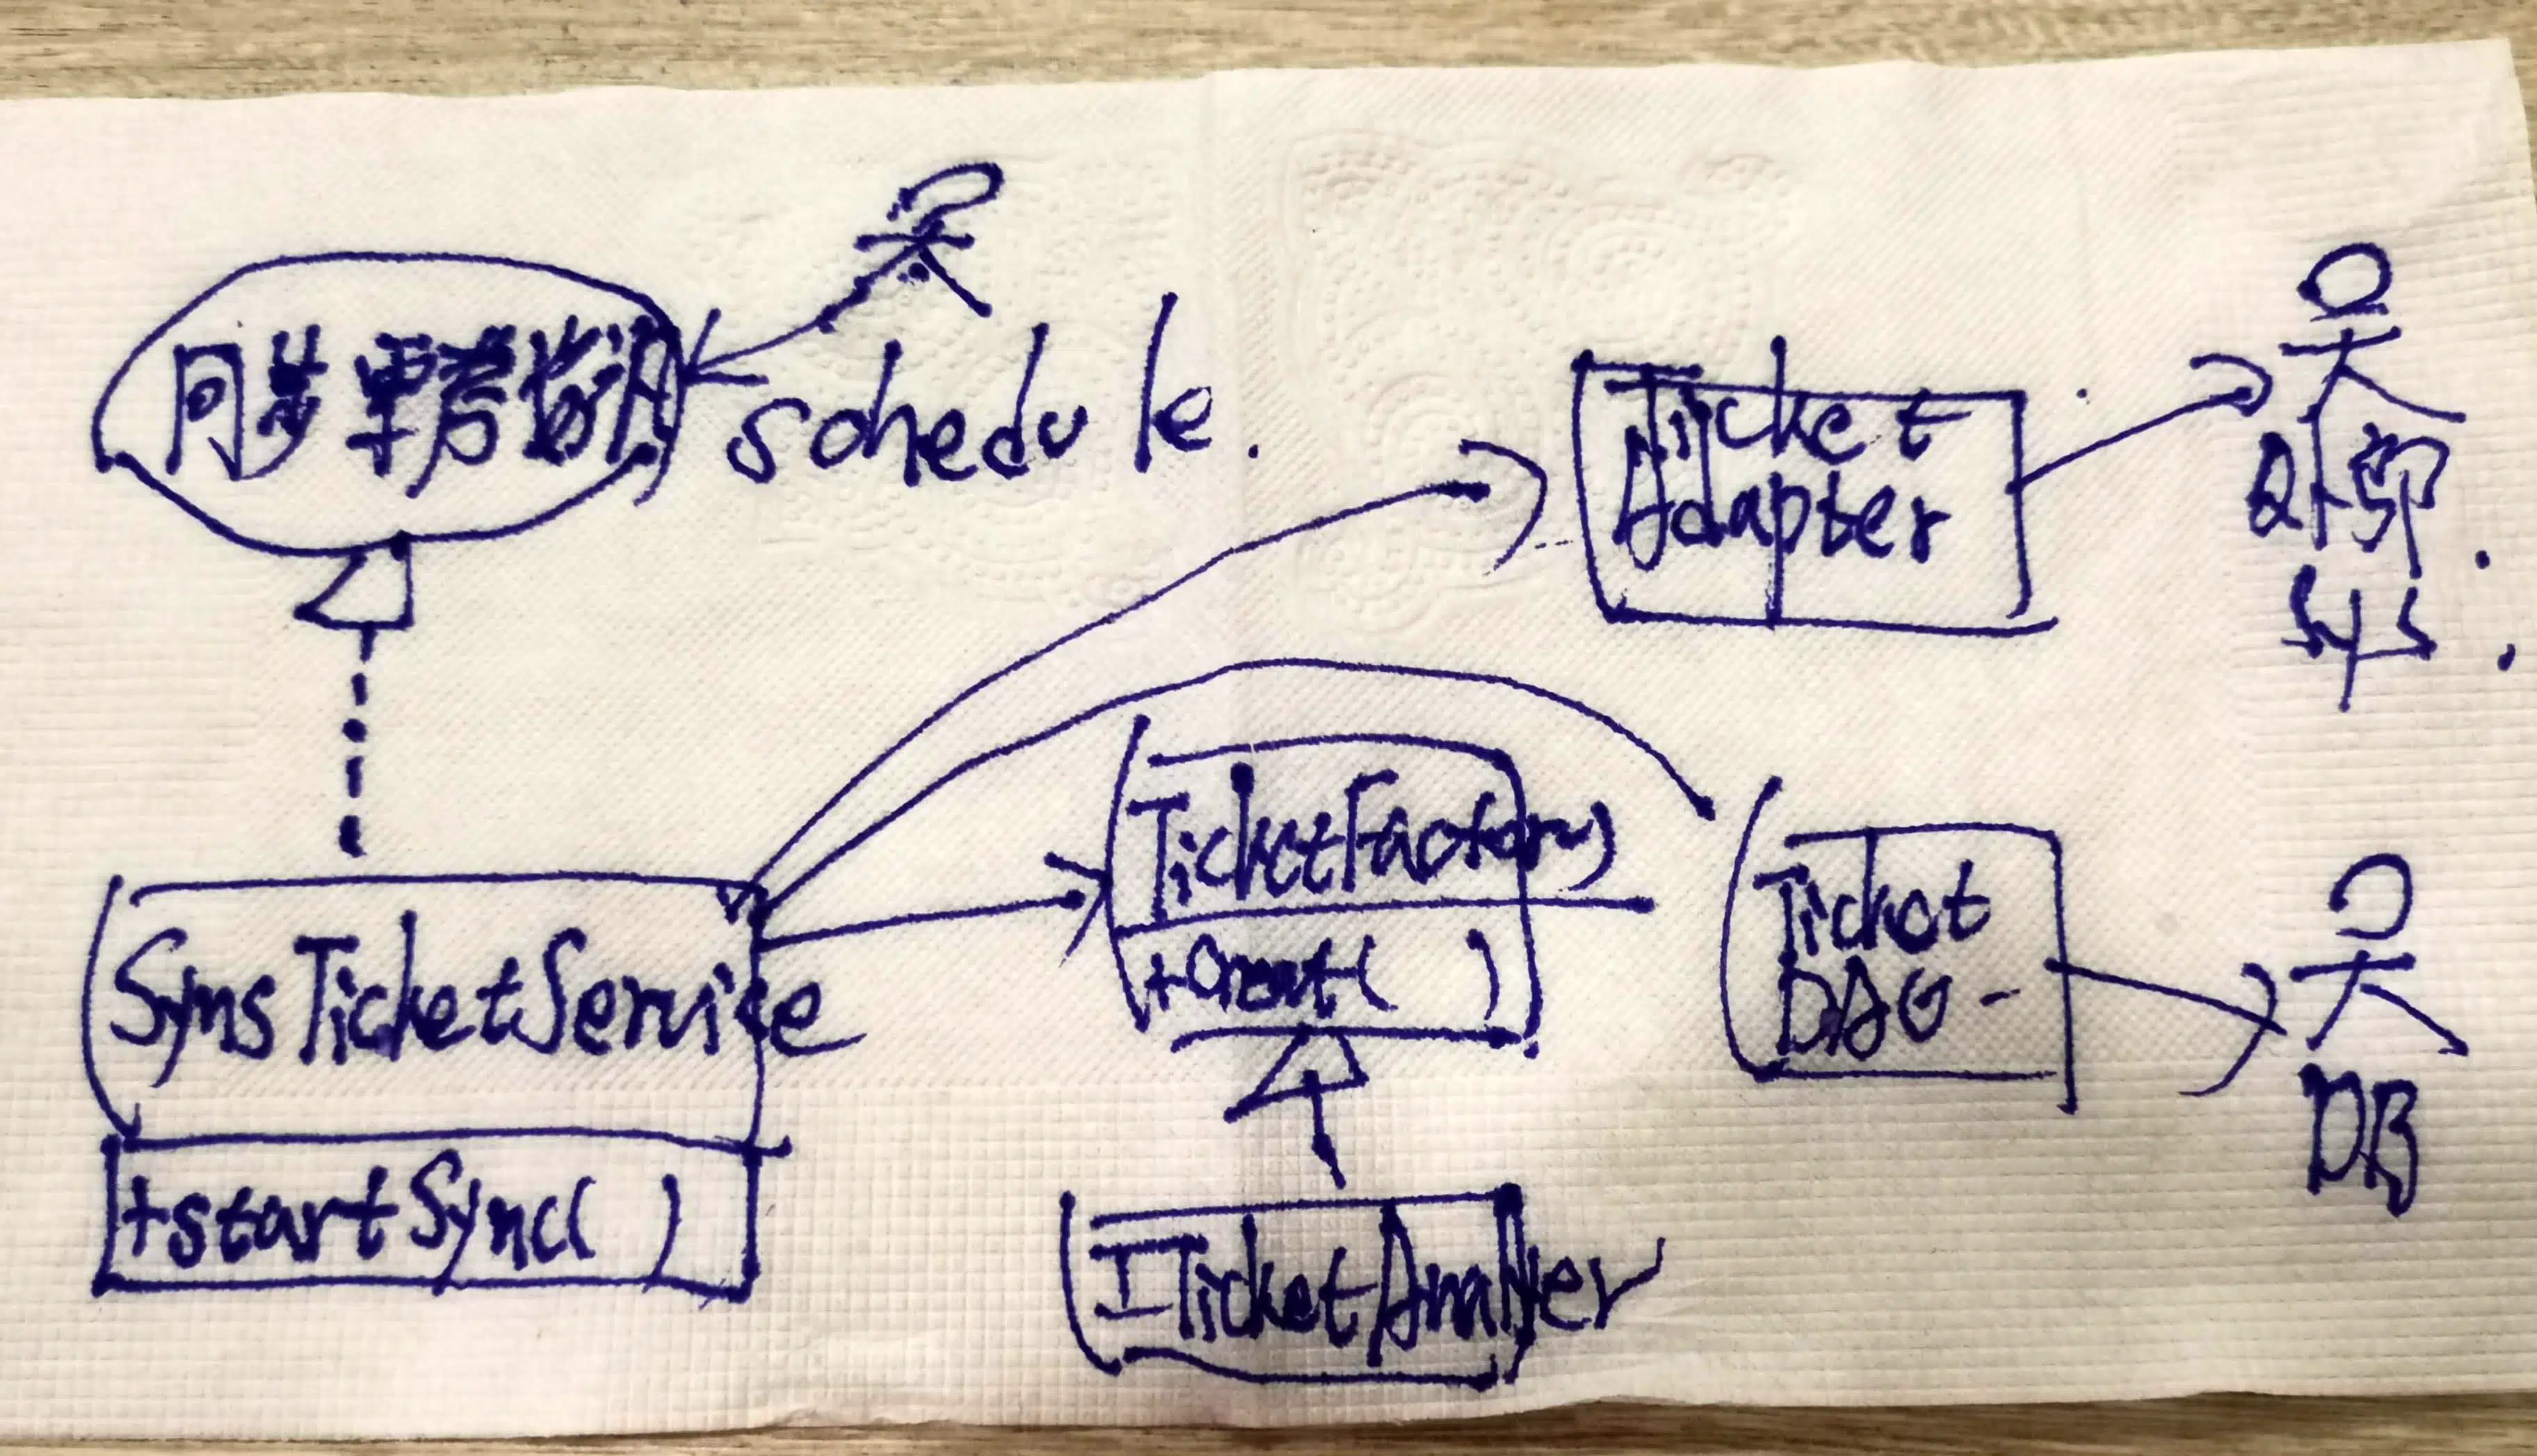 同步票券資訊
schedule.
Ticket
Adapter
外部
sys.
TicketFactory
+Creat( )
Ticket
DAO
DB
SynsTicketService
+startSync( )